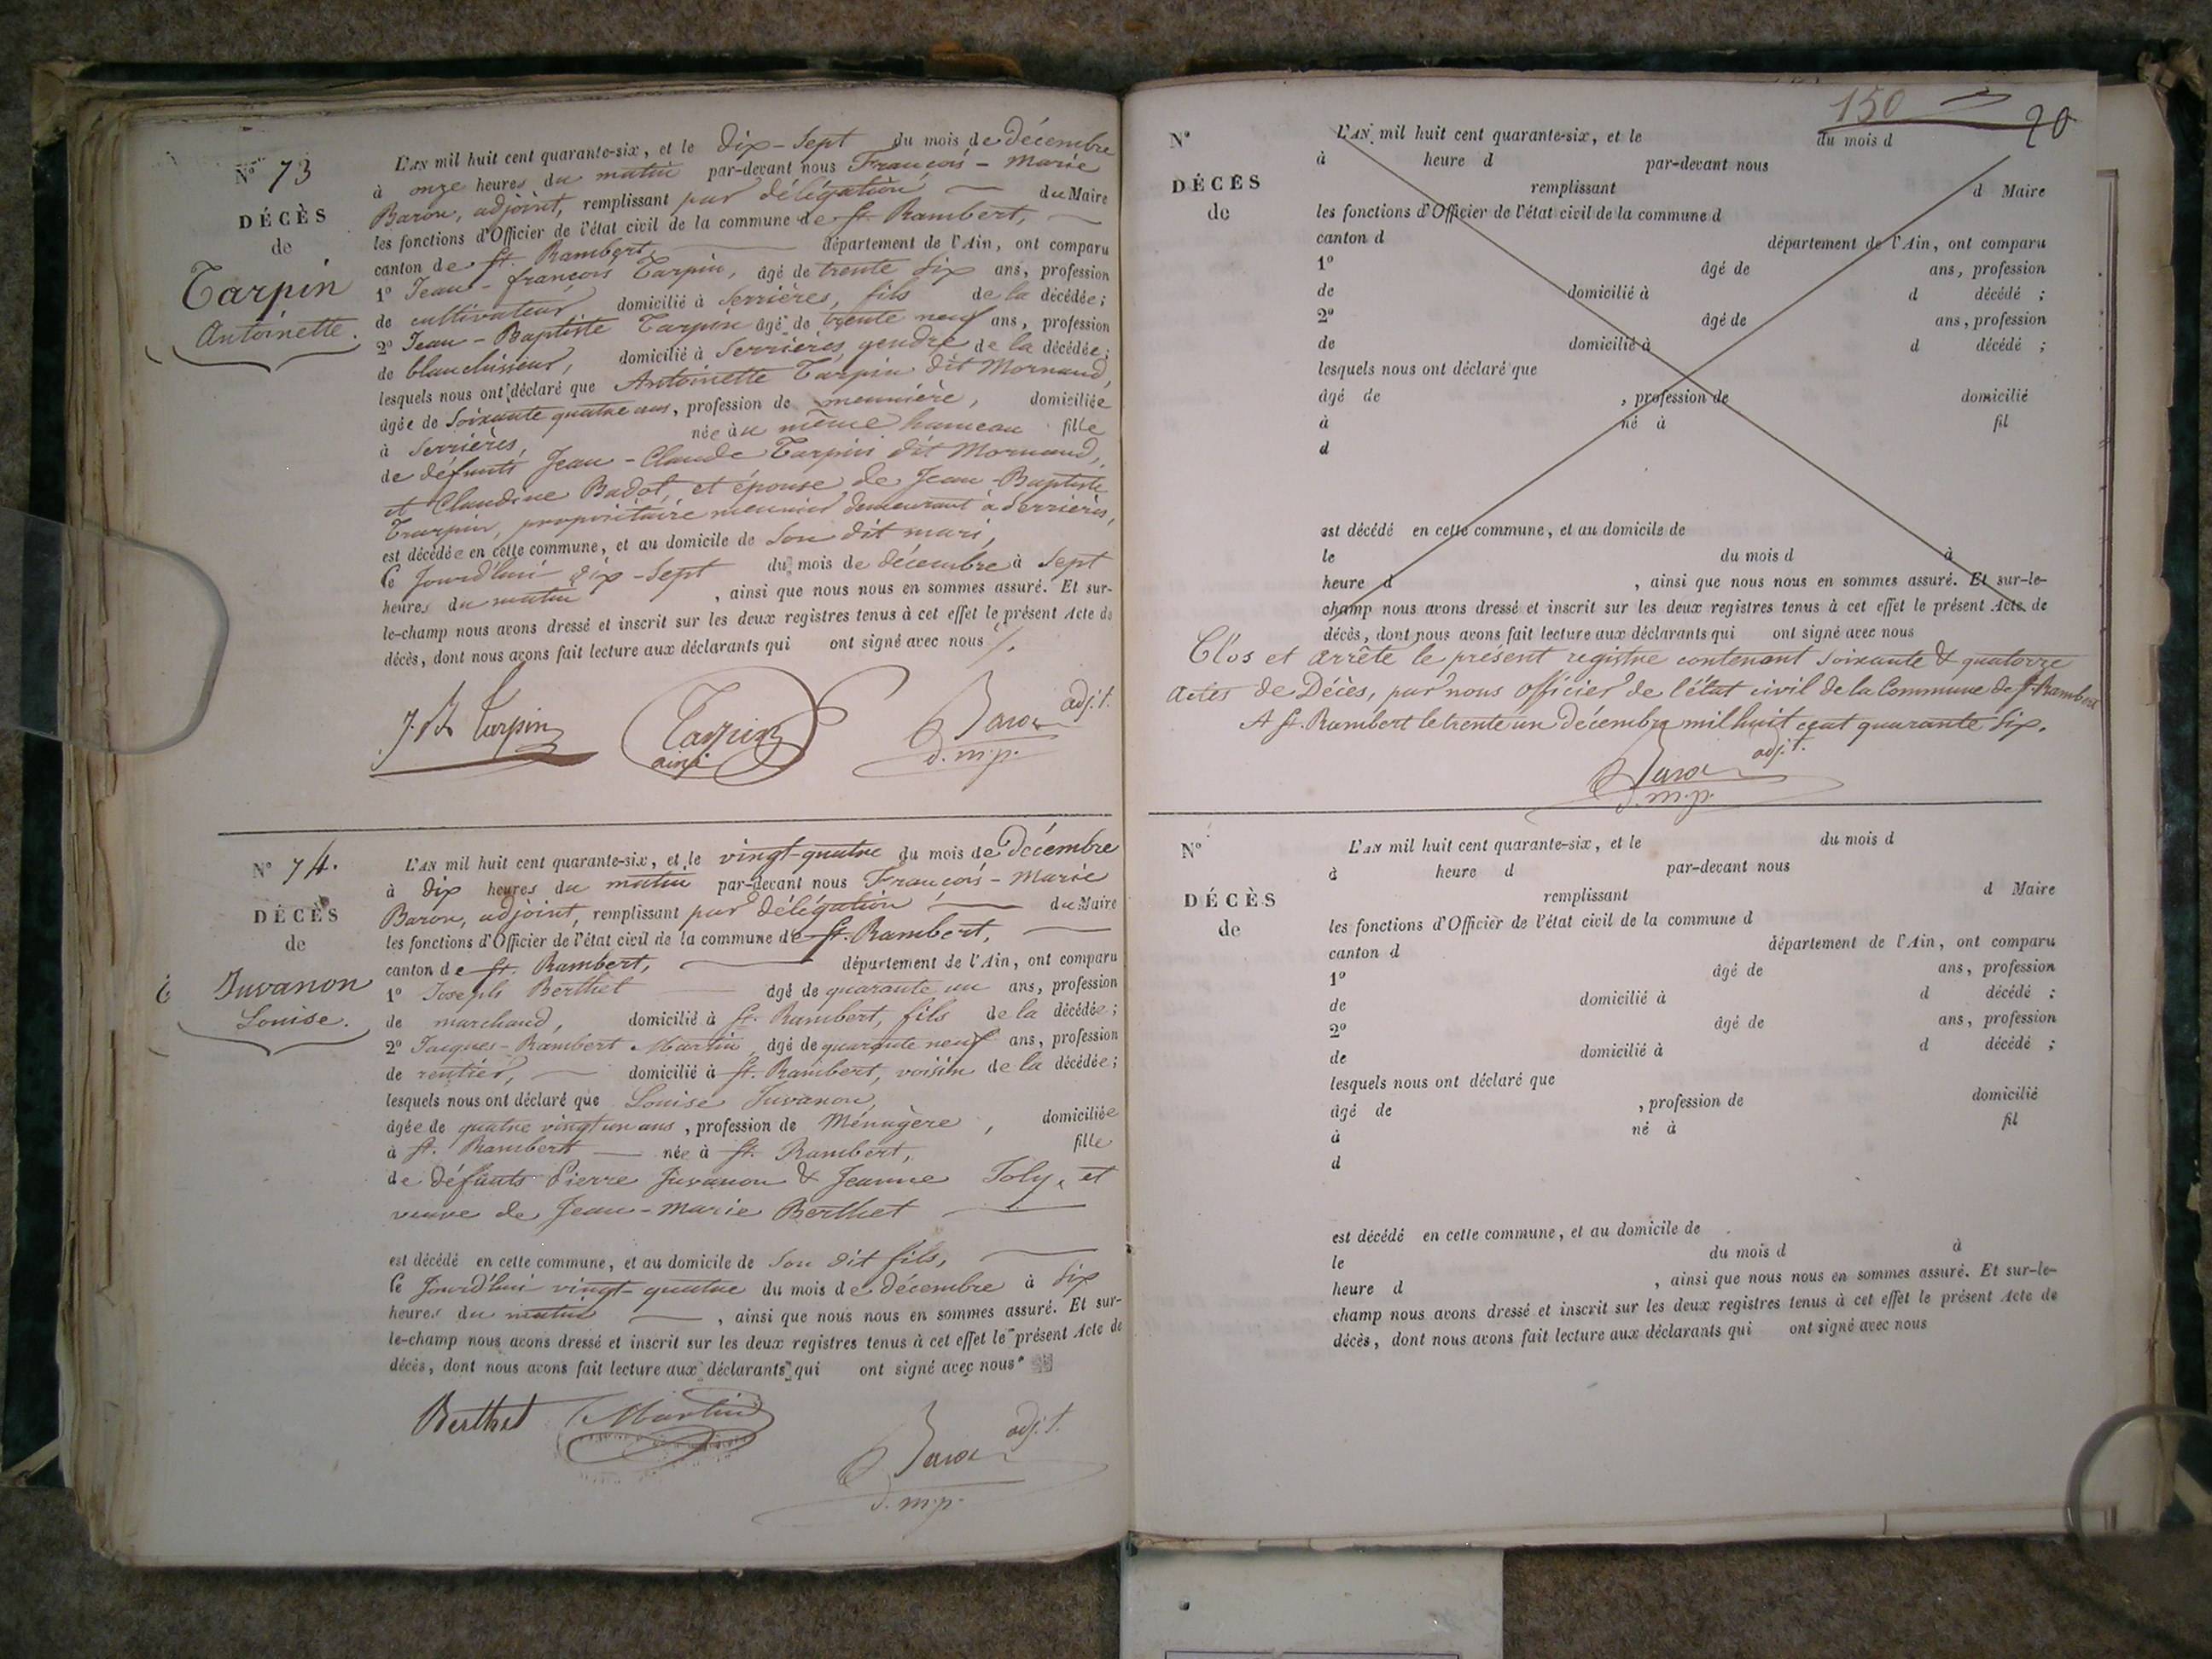 Nº 73
DÉCÈS
de
Tarpin
Antoinette.
L'AN mil huit cent quarante-six, et le dix-sept du mois de Décembre
à onze heures du matin par-devant nous François-Marie
Baron, adjoint, remplissant par délégation du Maire
les fonctions d'Officier de l'état civil de la commune de St. Rambert,
canton de St. Rambert, département de l'Ain, ont comparu
1º Jean-françois Tarpin, âgé de trente six ans, profession
de cultivateur domicilié à Serrières, fils de la décédée;
2º Jean-Baptiste Tarpin âgé de trente neuf ans, profession
de blanchisseur, domicilié à Serrières, gendre de la décédée;
lesquels nous ont déclaré que Antoinette Tarpin dit Mornand,
âgée de soixante quatre ans, profession de meunière, domiciliée
à Serrières, née au même hameau fille
de défunts Jean-Claude Tarpin dit Mornand,
et Claudine Badot, et épouse de Jean-Baptiste
Tarpin, propriétaire meunier demeurant à Serrières,
est décédée en cette commune, et au domicile de son dit mari,
ce jourd'hui dix-sept du mois de décembre à sept
heures du matin, ainsi que nous nous en sommes assuré. Et sur-
le-champ nous avons dressé et inscrit sur les deux registres tenus à cet effet le présent Acte de
décès, dont nous avons fait lecture aux déclarants qui ont signé avec nous
J. B. Tarpin Tarpin Baron adj.t.
ainé d.m.p.
Nº 74.
DÉCÈS
de
Juvanon
Louise.
L'AN mil huit cent quarante-six, et le vingt-quatre du mois de Décembre
à dix heures du matin par-devant nous François-Marie
Baron, adjoint, remplissant par délégation du Maire
les fonctions d'Officier de l'état civil de la commune de St. Rambert,
canton de St. Rambert, département de l'Ain, ont comparu
1º Joseph Berthet âgé de quarante un ans, profession
de marchand, domicilié à St. Rambert, fils de la décédée;
2º Jacques-Rambert Martin, âgé de quarante neuf ans, profession
de rentier, domicilié à St. Rambert, voisin de la décédée;
lesquels nous ont déclaré que Louise Juvanon,
âgée de quatre vingt un ans, profession de Ménagère, domiciliée
à St. Rambert née à St. Rambert, fille
de défunts Pierre Juvanon & Jeanne Joly, et
veuve de Jean-Marie Berthet
est décédé en cette commune, et au domicile de son dit fils,
ce jourd'hui vingt-quatre du mois de décembre à six
heures du matin, ainsi que nous nous en sommes assuré. Et sur-
le-champ nous avons dressé et inscrit sur les deux registres tenus à cet effet le présent Acte de
décès, dont nous avons fait lecture aux déclarants qui ont signé avec nous
Berthet Martin Baron adj.t.
d.m.p.
150
20
Nº
DÉCÈS
de
L'AN mil huit cent quarante-six, et le du mois d
à heure d par-devant nous
remplissant d Maire
les fonctions d'Officier de l'état civil de la commune d
canton d département de l'Ain, ont comparu
1º âgé de ans, profession
de domicilié à d décédé ;
2º âgé de ans, profession
de domicilié à d décédé ;
lesquels nous ont déclaré que
âgé de , profession de domicilié
à né à fil
d
est décédé en cette commune, et au domicile de
le du mois d à
heure d , ainsi que nous nous en sommes assuré. Et sur-le-
champ nous avons dressé et inscrit sur les deux registres tenus à cet effet le présent Acte de
décès, dont nous avons fait lecture aux déclarants qui ont signé avec nous
Clos et arrêté le présent registre contenant soixante & quatorze
actes de Décès, par nous officier de l'état civil de la Commune de St. Rambert
A St. Rambert le trente un décembre mil huit cent quarante six.
Baron adj.t.
d.m.p.
Nº
DÉCÈS
de
L'AN mil huit cent quarante-six, et le du mois d
à heure d par-devant nous
remplissant d Maire
les fonctions d'Officier de l'état civil de la commune d
canton d département de l'Ain, ont comparu
1º âgé de ans, profession
de domicilié à d décédé ;
2º âgé de ans, profession
de domicilié à d décédé ;
lesquels nous ont déclaré que
âgé de , profession de domicilié
à né à fil
d
est décédé en cette commune, et au domicile de
le du mois d à
heure d , ainsi que nous nous en sommes assuré. Et sur-le-
champ nous avons dressé et inscrit sur les deux registres tenus à cet effet le présent Acte de
décès, dont nous avons fait lecture aux déclarants qui ont signé avec nous